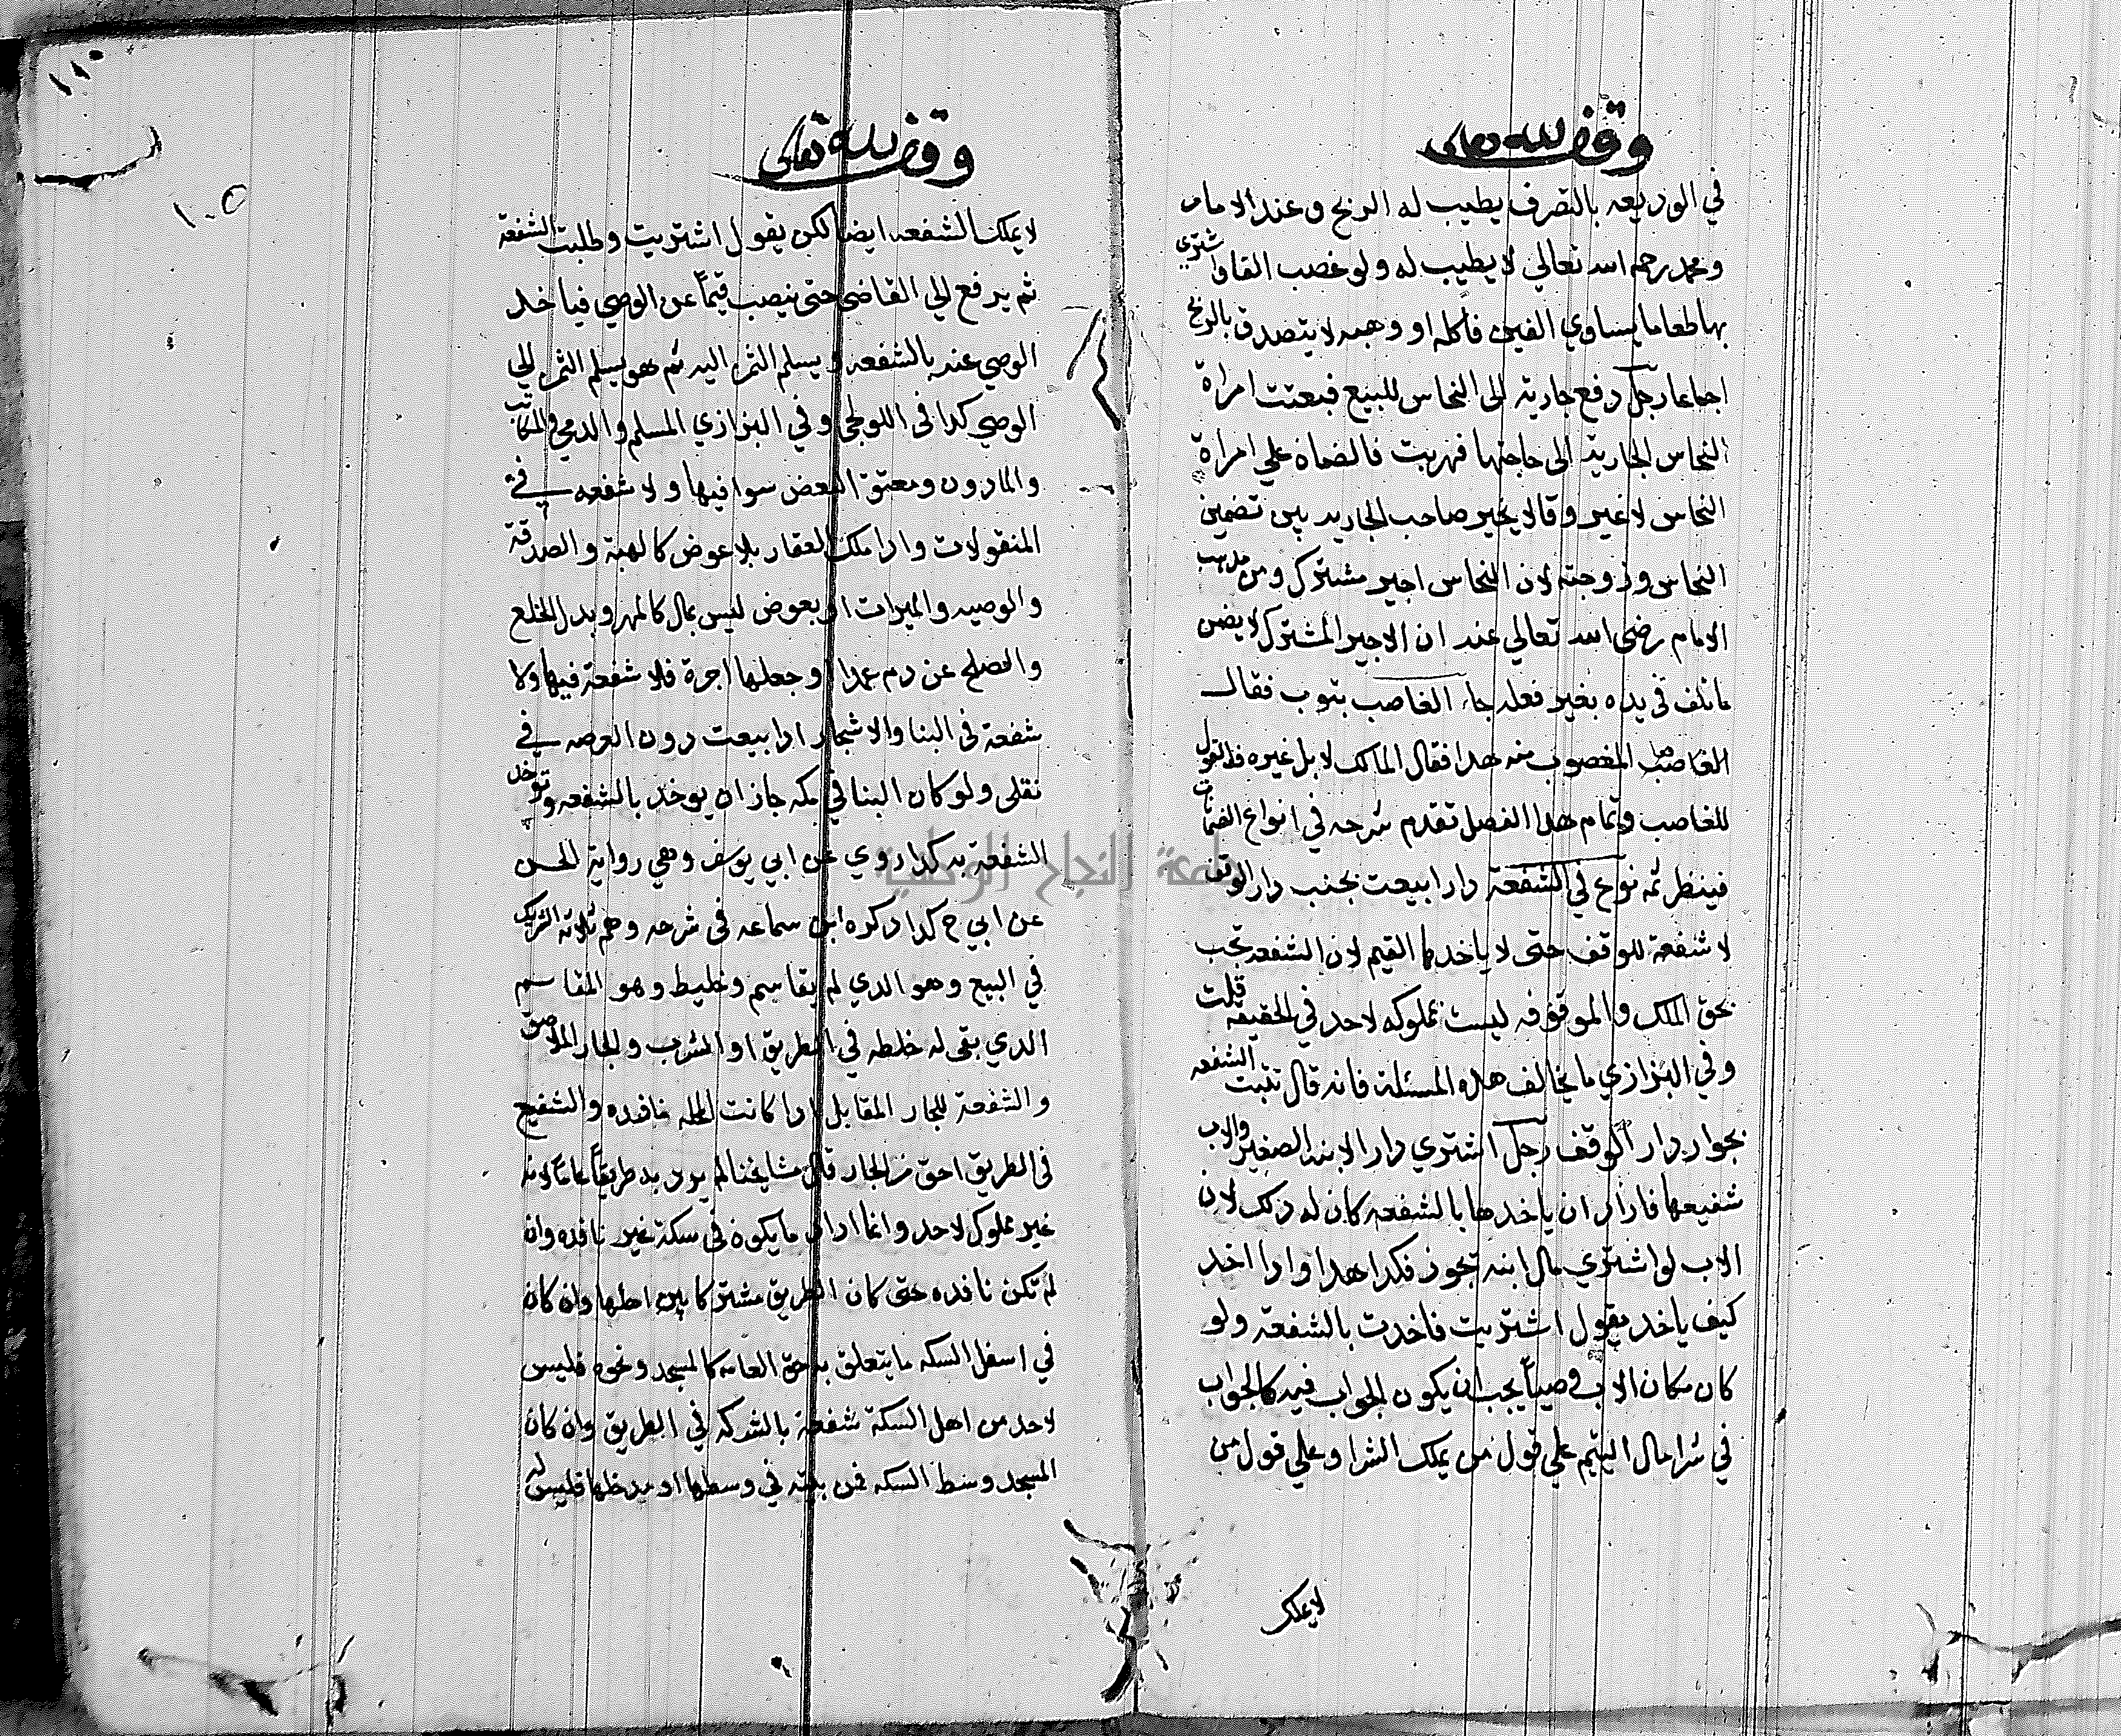 وقف لله تعالى
في الوديعه بالتصرف يطيب له الربح وعند الامام
ومحمد رحمهما الله تعالي لا يطيب له ولو غصب الفا واشتري
بها طعاما يساوي الفين فاكله او وهبه لا يتصدق بالربح
اجماعا رجل دفع جارية الى النخاس للبيع فبعثت امراة
النخاس الجارية الى حاجتها فهربت فالضمان علي امراة
النخاس لا غير وقالا يخير صاحب الجاريه بين تضمين
النخاس وزوجته لان النخاس اجير مشترك ومن مذهب
الامام رضى الله تعالي عنه ان الاجير المشترك لا يضمن
ما تلف في يده بغير فعله جاء الغاصب بثوب فقال
الغاصب المغصوب منه هدا فقال المالك لا بل غيره فالقول
للغاصب وتمام هدا الفصل تقدم شرحه في انواع الضمانات
فينظر ثمه نوع في الشفعة دار ابيعت بجنب دار الوقف
لا شفعة للوقف حتى لا ياخدها القيم لان الشفعه تجب
بحق الملك والموقوفه ليست بمملوكه لاحد في الحقيقه قلت
وفي البزازي ما يخالف هده المسئلة فانه قال تثبت الشفعه
بجوار دار الوقف رجل اشتري دار الابنه الصغير والاب
شفيعها فاراد ان ياخدها بالشفعه كان له ذلك لان
الاب لو اشتري مال ابنه تجوز فكدا هدا وادا اخد
كيف ياخد يقول اشتريت فاخدت بالشفعة ولو
كان مكان الاب وصيا يجب ان يكون الجواب فيه كالجواب
في شرا مال اليتيم علي قول من يملك الشرا وعلي قول من
لا يملك
وقف لله تعالى
١١٠
١٠٥
لا يملك الشفعه ايضا لكن يقول اشتريت وطلبت الشفعة
ثم يرفع الي القاضي حتى ينصب قيما عن الوصي فياخد
الوصي عنه بالشفعه ويسلم الثمن اليه ثم هو يسلم الثمن الي
الوصي كدا في الولوالجي وفي البزازي المسلم والدمي والمكاتب
والمادون ومعتق البعض سوا فيها ولا شفعه في
المنقولات وادا ملك العقار بلا عوض كالهبة والصدقة
والوصيه والميراث او بعوض ليس بمال كالمهر وبدل الخلع
والصلح عن دم عمد او جعلها اجرة فلا شفعة فيها ولا
شفعة في البنا والاشجار ادا بيعت دون العرصه في
نقلى ولو كان البنا في مكه جاز ان يوخد بالشفعه وتوخد
الشفعة به كدا روي عن ابي يوسف وهي رواية الحسن
عن ابي ح كدا دكره ابن سماعه في شرحه وهم ثلاثه الشريك
في البيع وهو الدي لم يقاسم وخليط وهو المقاسم
الدي بقى له خلطه في الطريق او الشرب والجار الملاصق
والشفعة للجار المقابل ادا كانت المحله نافده والشفيع
في الطريق احق من الجار قال مشايخنا لم يرد به طريقا عاما لانه
غير مملوك لاحد وانما اراد ما يكون في سكة غير نافده وان
لم تكن نافده حتى كان الطريق مشتركا بين اهلها وان كان
في اسفل السكه ما يتعلق به حق العامه كالمسجد ونحوه فليس
لاحد من اهل السكة شفعة بالشركه في الطريق وان كان
المسجد وسط السكه فمن بيته في وسطها او مدخلها فليس له
جامعة النجاح الوطنية